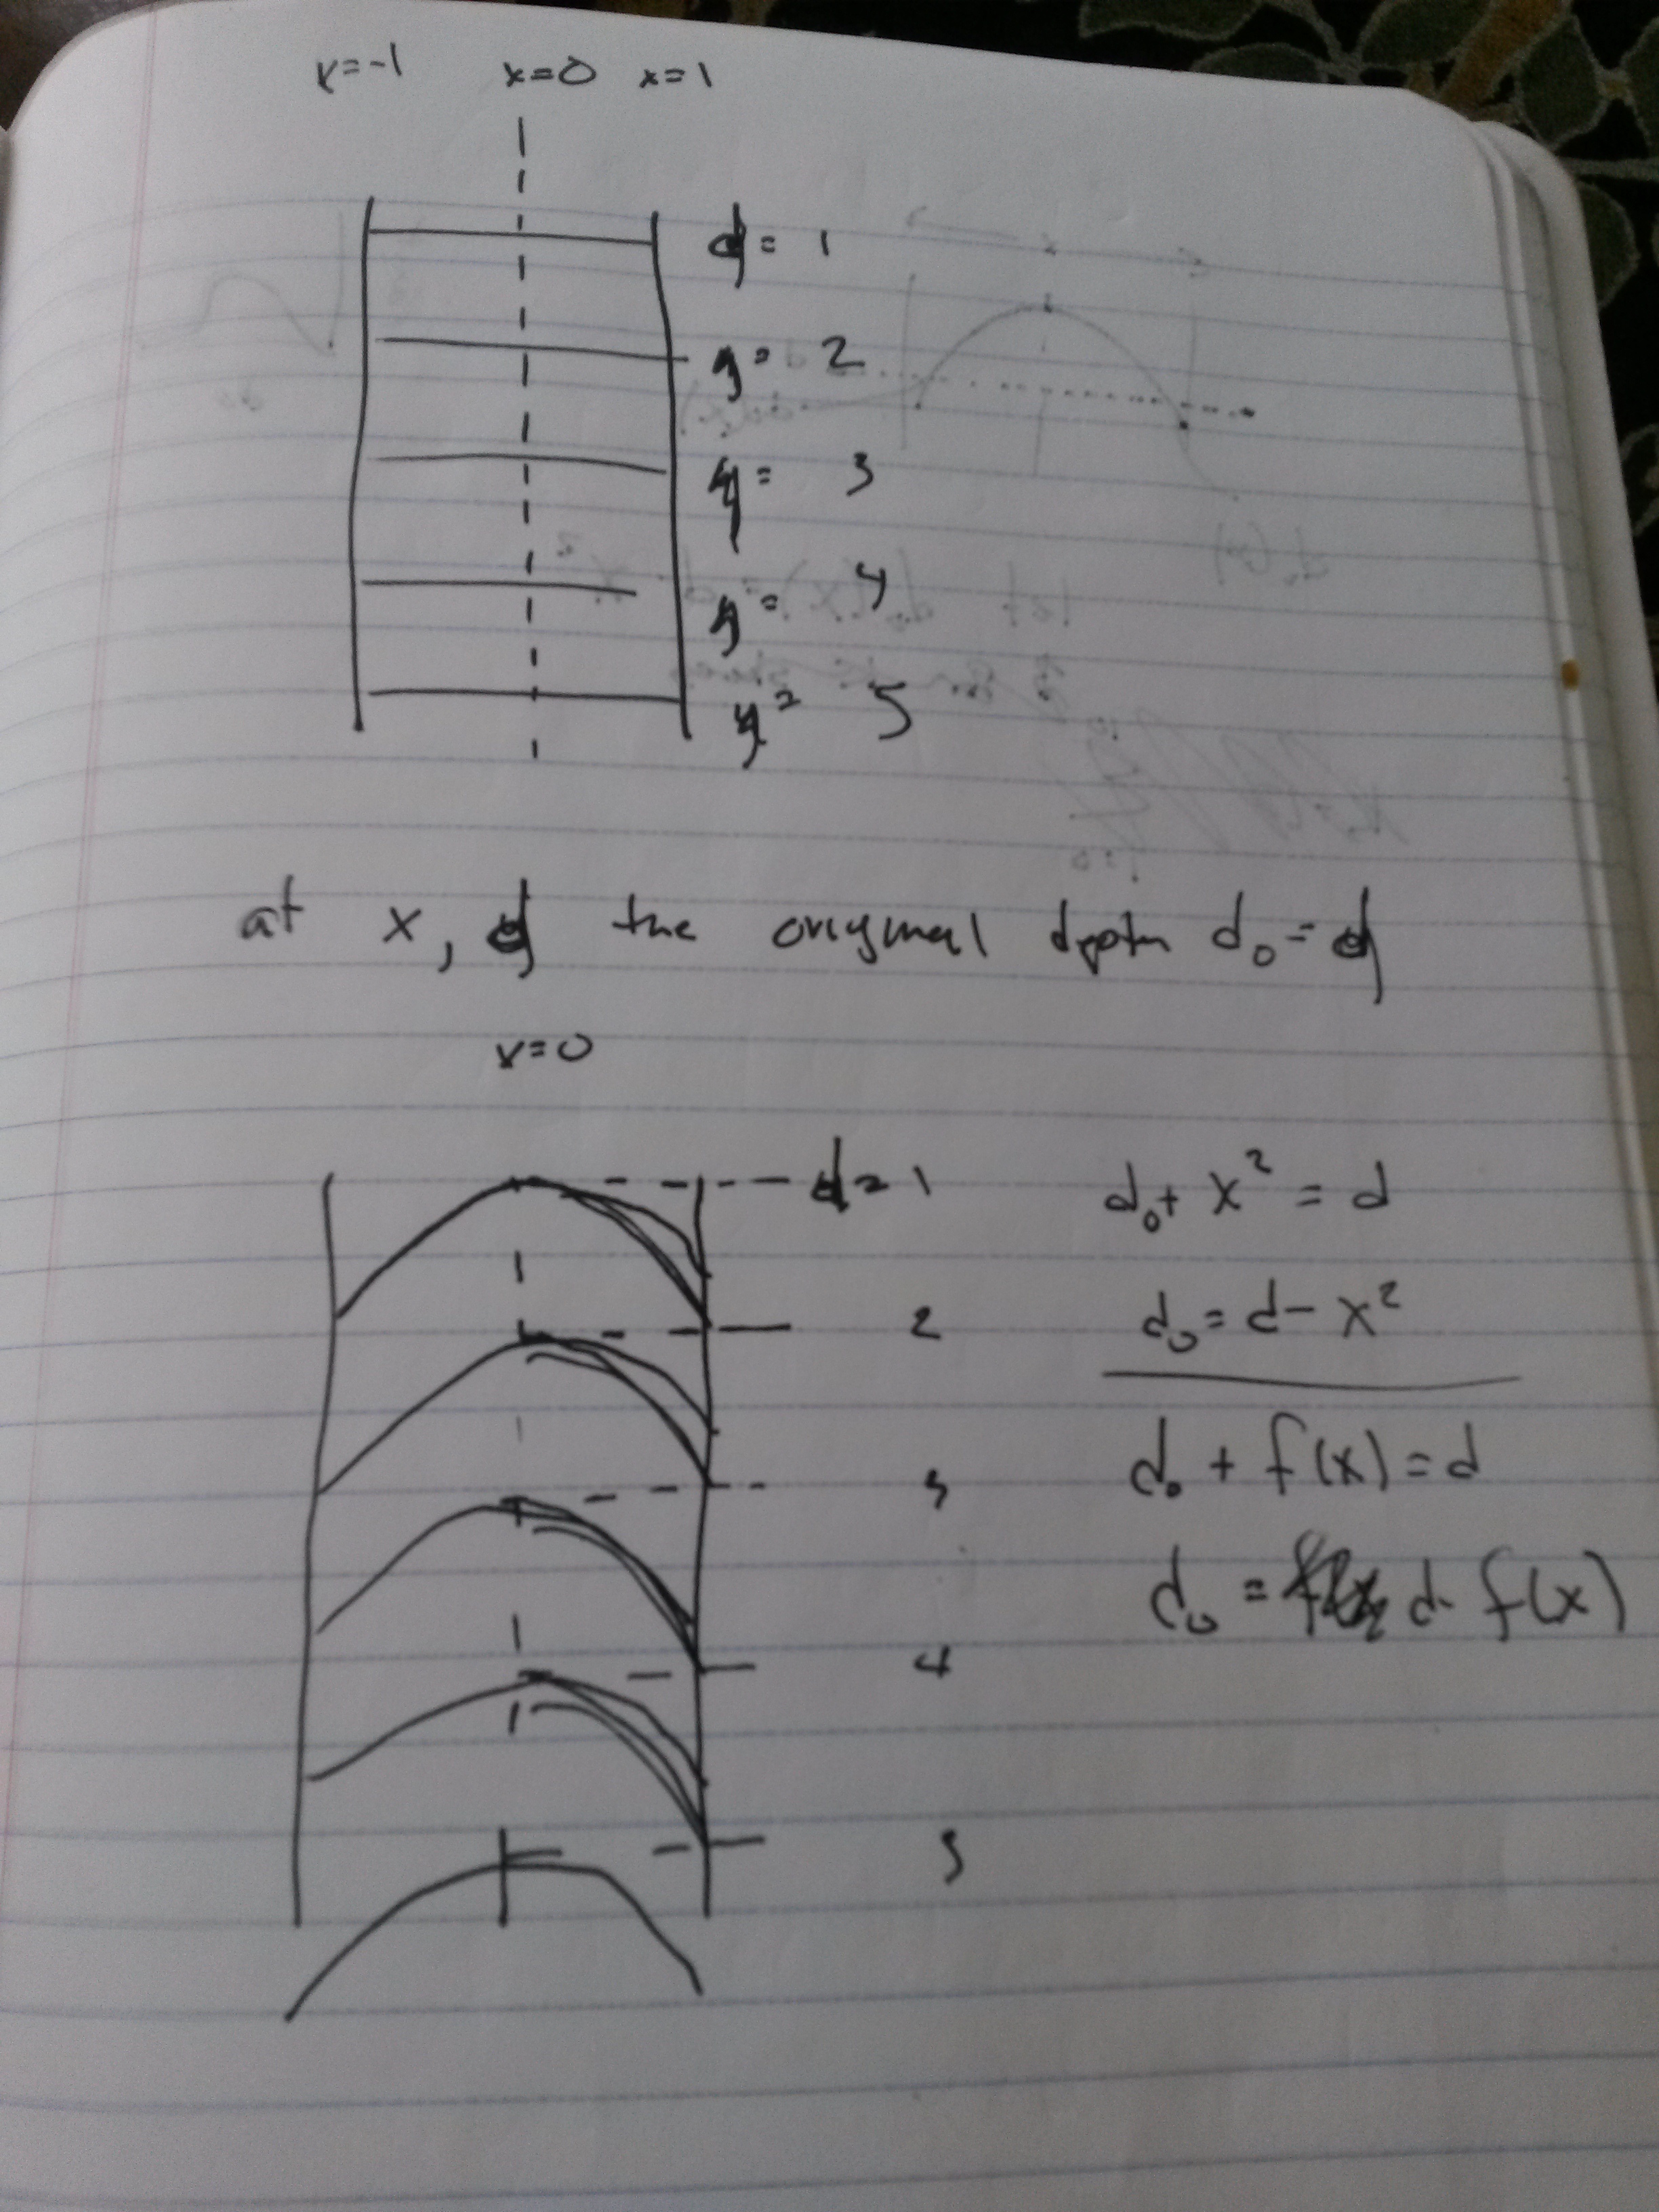 x=-1 x=0 x=1
d= 1
y= 2
y= 3
y= 4
y= 5
at x, d the original depth d₀=d
x=0
d=1
2
3
4
5
d₀+ x² = d
d₀= d- x²
d₀ + f(x) = d
d₀ = d- f(x)